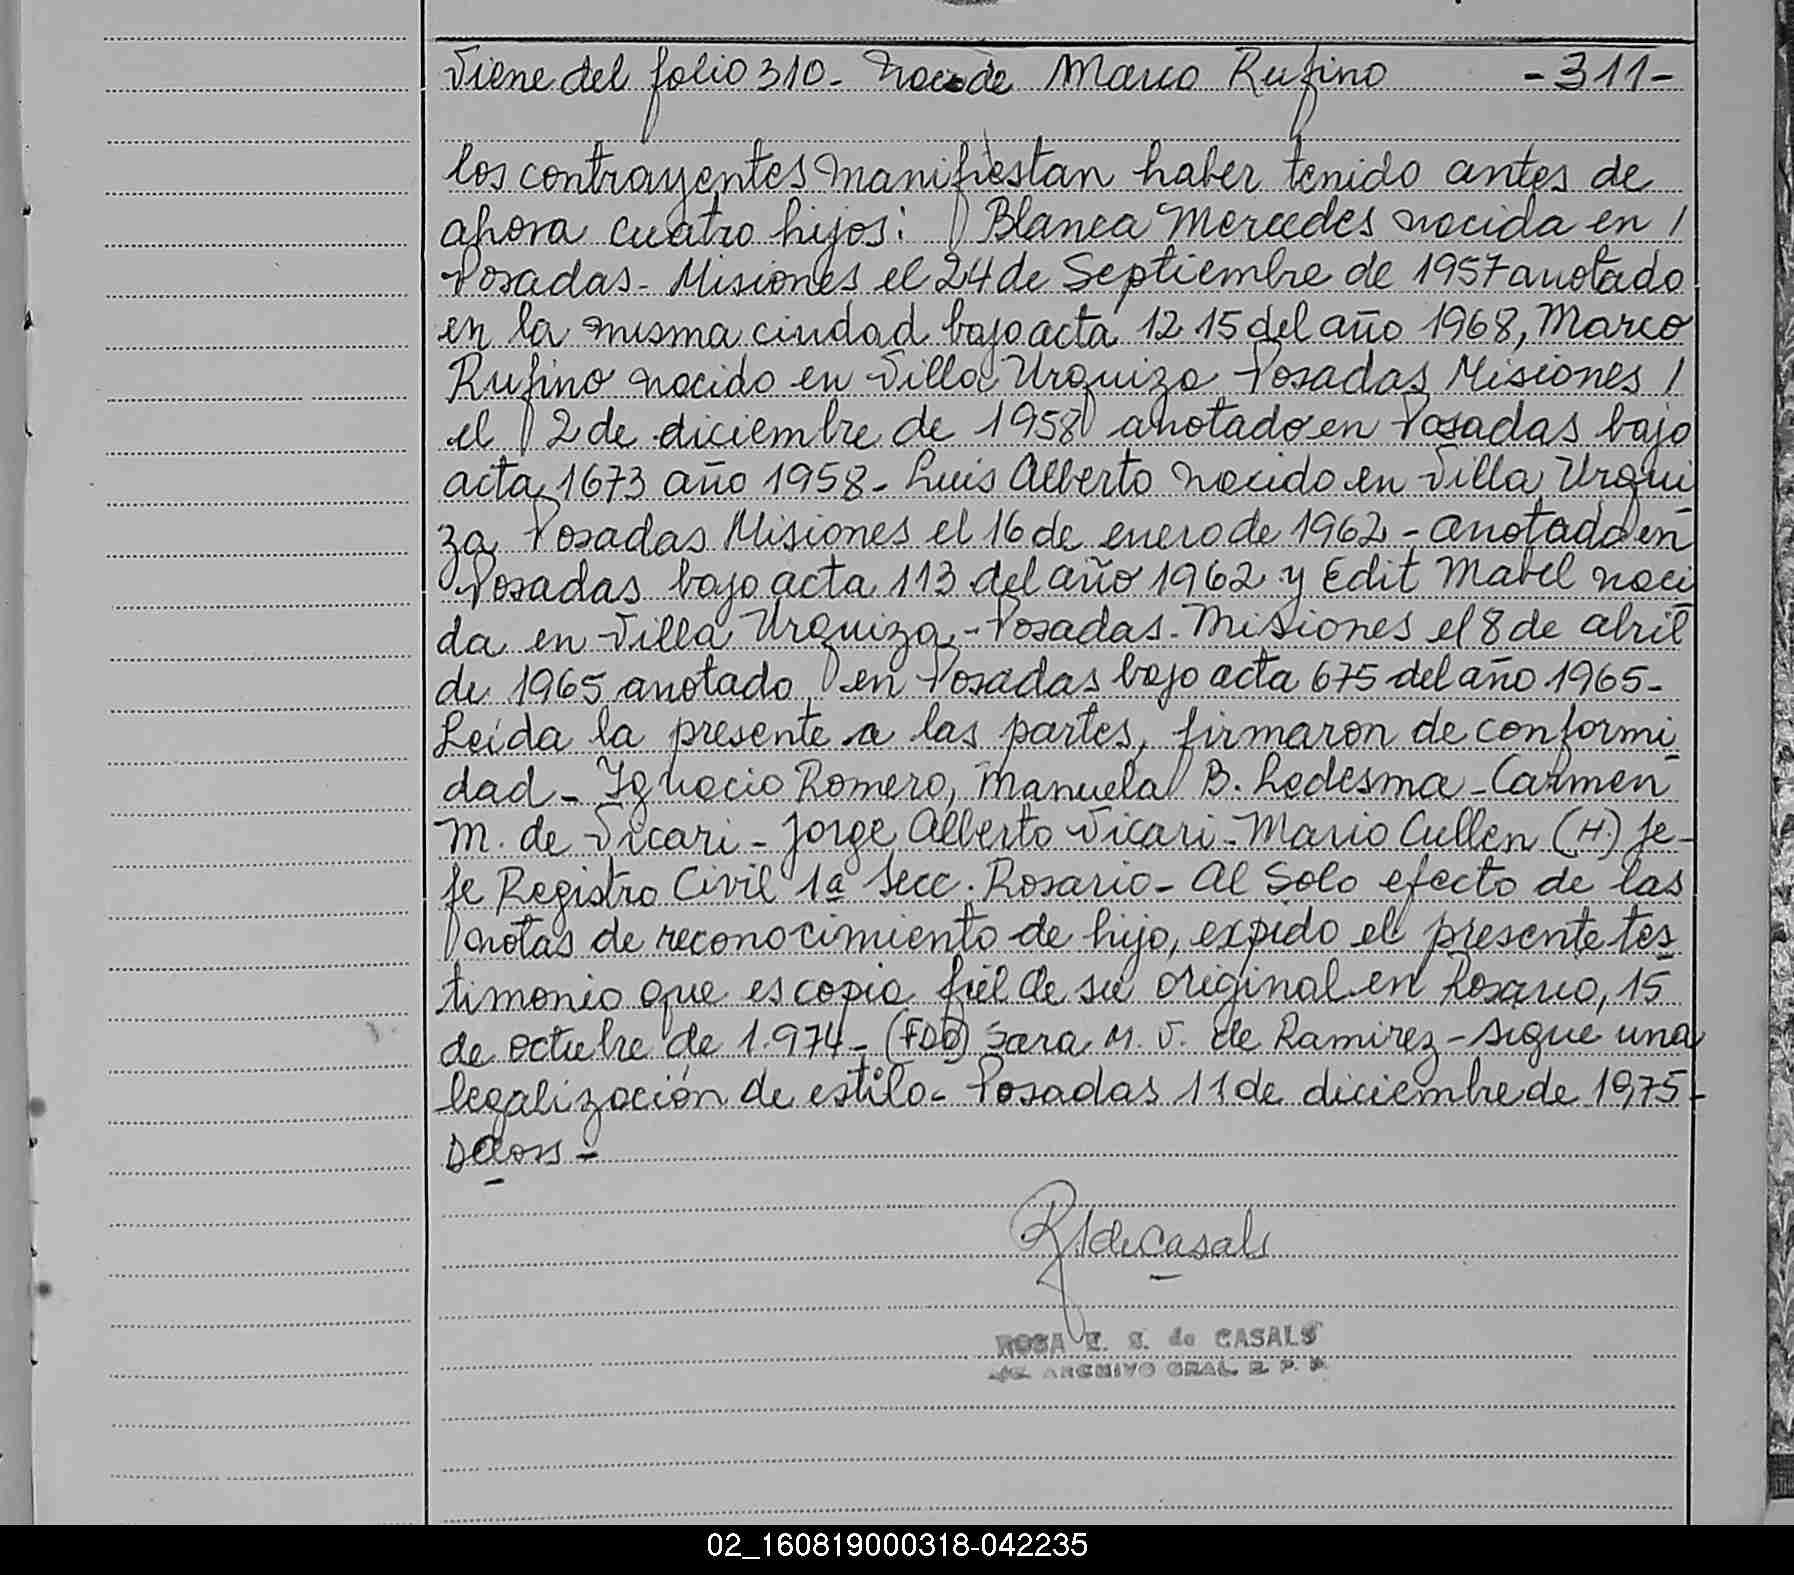 Viene del folio 310- Nac de Marco Rufino -311-
los contrayentes manifiestan haber tenido antes de
ahora cuatro hijos: Blanca Mercedes nacida en /
Posadas- Misiones el 24 de Septiembre de 1957 anotado
en la misma ciudad bajo acta 1215 del año 1968, Marco
Rufino nacido en Villa Urquiza Posadas Misiones /
el 2 de diciembre de 1958 anotado en Posadas bajo
acta 1673 año 1958- Luis Alberto nacido en Villa Urqui
za Posadas Misiones el 16 de enero de 1962- anotado en
Posadas bajo acta 113 del año 1962 y Edit Mabel naci
da en Villa Urquiza-Posadas-Misiones el 8 de abril
de 1965 anotado en Posadas bajo acta 675 del año 1965-
Leída la presente a las partes, firmaron de conformi
dad- Ignacio Romero, Manuela B. Ledesma-Carmen
M. de Vicari- Jorge Alberto Vicari-Mario Cullen (H.) Je-
fe Registro Civil 1ª Secc. Rosario- Al Solo efecto de las
notas de reconocimiento de hijo, expido el presente tes
timonio que es copia fiel de su original en Rosario, 15
de octubre de 1.974- (FDO) Sara M. V. de Ramirez-sigue una
legalización de estilo- Posadas 11 de diciembre de 1975-
R S de Casals
ROSA E. S. de CASALS
ARCHIVO GRAL. R. P. P.
02_160819000318-042235